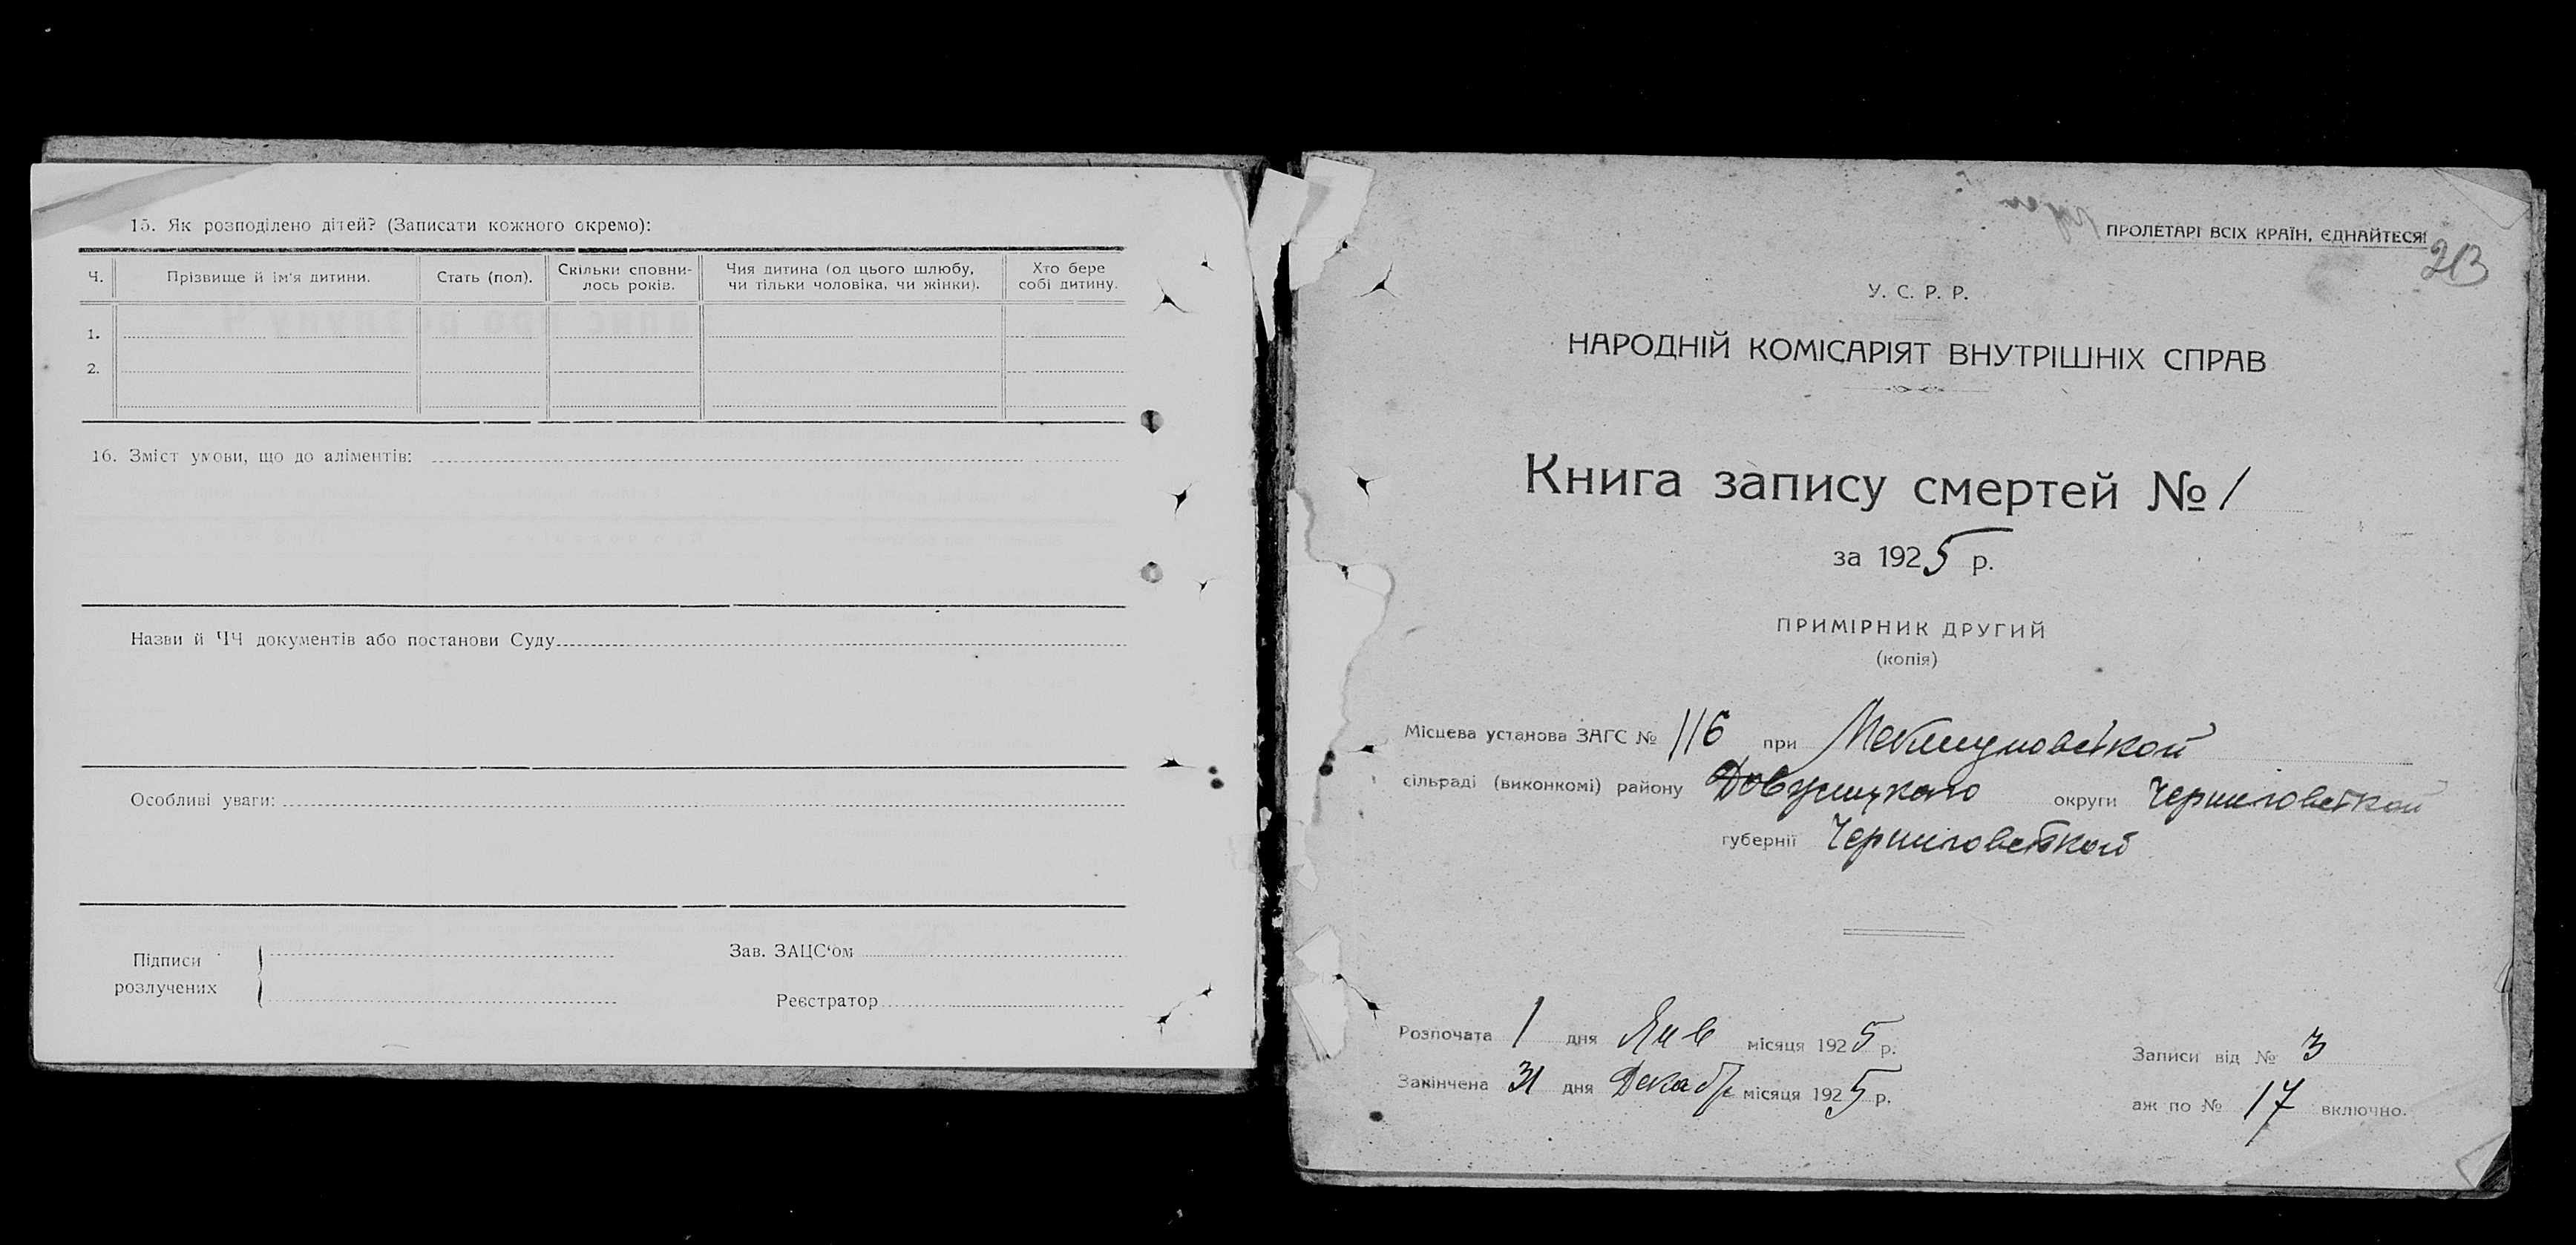 15. Як розподілено дітей? (Записати кожного окремо):
Ч. Прізвище й ім'я дитини. Стать (пол). Скільки сповни-лось років. Чия дитина (од цього шлюбу, чи тільки чоловіка, чи жінки). Хто бере собі дитину.
1.
2.
16. Зміст умови, що до аліментів:
Назви й ЧЧ документів або постанови Суду
Особливі уваги:
Підписи розлучених
Зав. ЗАЦС'ом
Реєстратор
ПРОЛЕТАРІ ВСІХ КРАЇН, ЄДНАЙТЕСЯ!
213
У. С. Р. Р.
НАРОДНІЙ КОМІСАРІЯТ ВНУТРІШНІХ СПРАВ
Книга запису смертей № 1
за 1925 р.
ПРИМІРНИК ДРУГИЙ
(копія)
Місцева установа ЗАГС № 116 при
сільраді (виконкомі) району округи Черниговской
губернії Черниговской
Розпочата 1 дня Янв місяця 1925 р.
Закінчена 31 дня Декабр місяця 1925 р.
Записи від № 3
аж по № 17 включно.